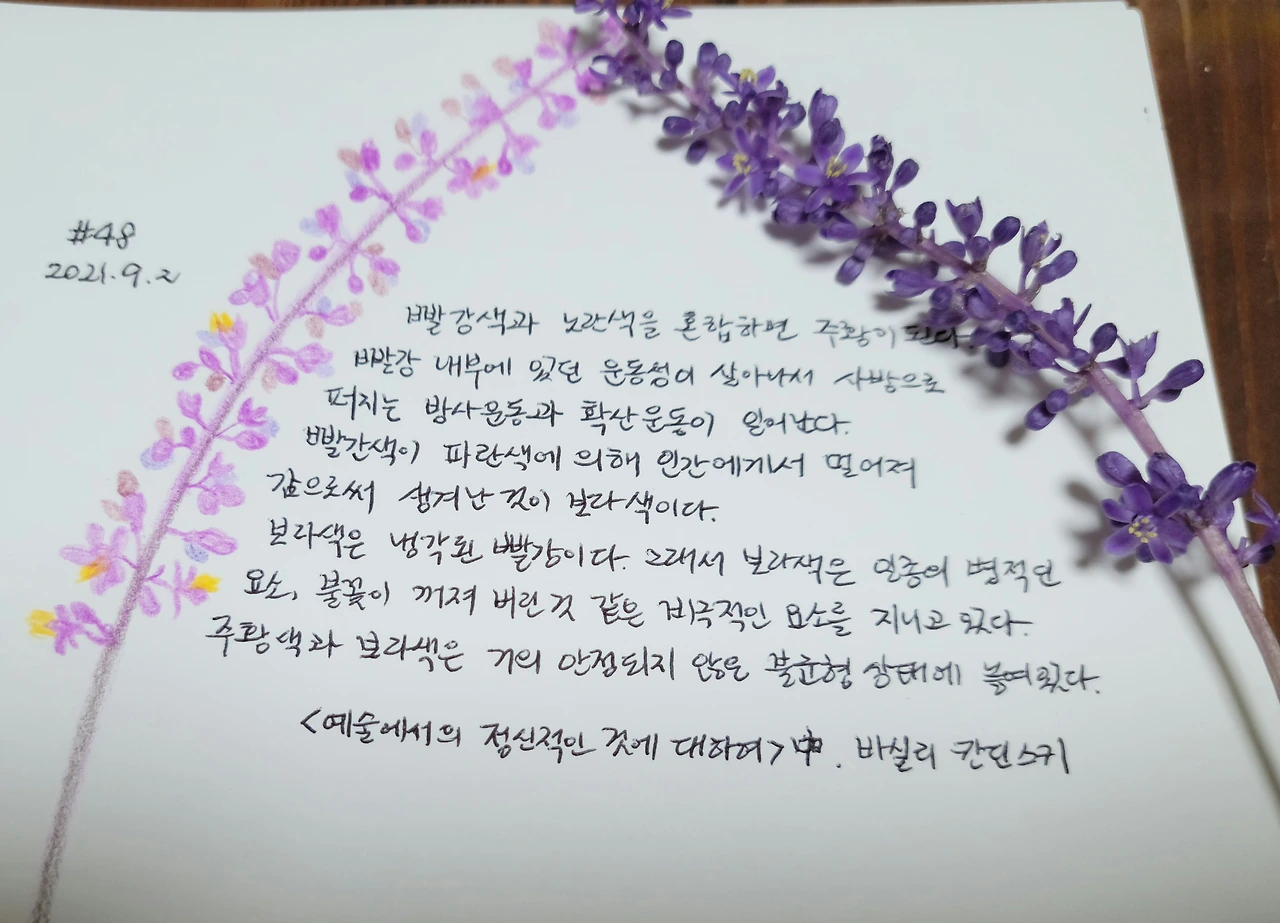 #48
2021.9.2
빨강색과 노란색을 혼합하면 주황이 된다.
빨강 내부에 있던 운동성이 살아나서 사방으로
퍼지는 방사운동과 확산운동이 일어난다.
빨간색이 파란색에 의해 인간에게서 멀어져
감으로써 생겨난 것이 보라색이다.
보라색은 냉각된 빨강이다. 그래서 보라색은 일종의 병적인
요소, 불꽃이 꺼져 버린 것 같은 비극적인 요소를 지니고 있다.
주황색과 보라색은 거의 안정되지 않은 불균형 상태에 놓여있다.
<예술에서의 정신적인 것에 대하여> 中. 바실리 칸딘스키